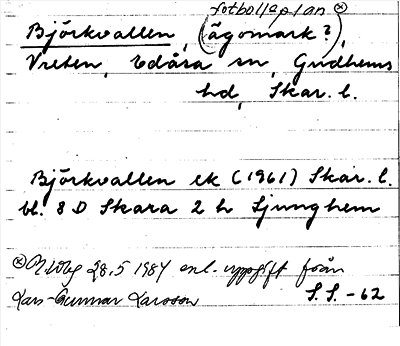 fotbollsplan ⊗
Björkvallen, (ägomark?),
Vreten, Edåsa sn, Gudhems
hd, Skar. l.
Björkvallen ek (1961) Skar. l.
bl. 8 D Skara 2 h Ljunghem
⊗ 28.5 1984 enl. uppgift från
Lars-Gunnar Larsson
S.S. -62